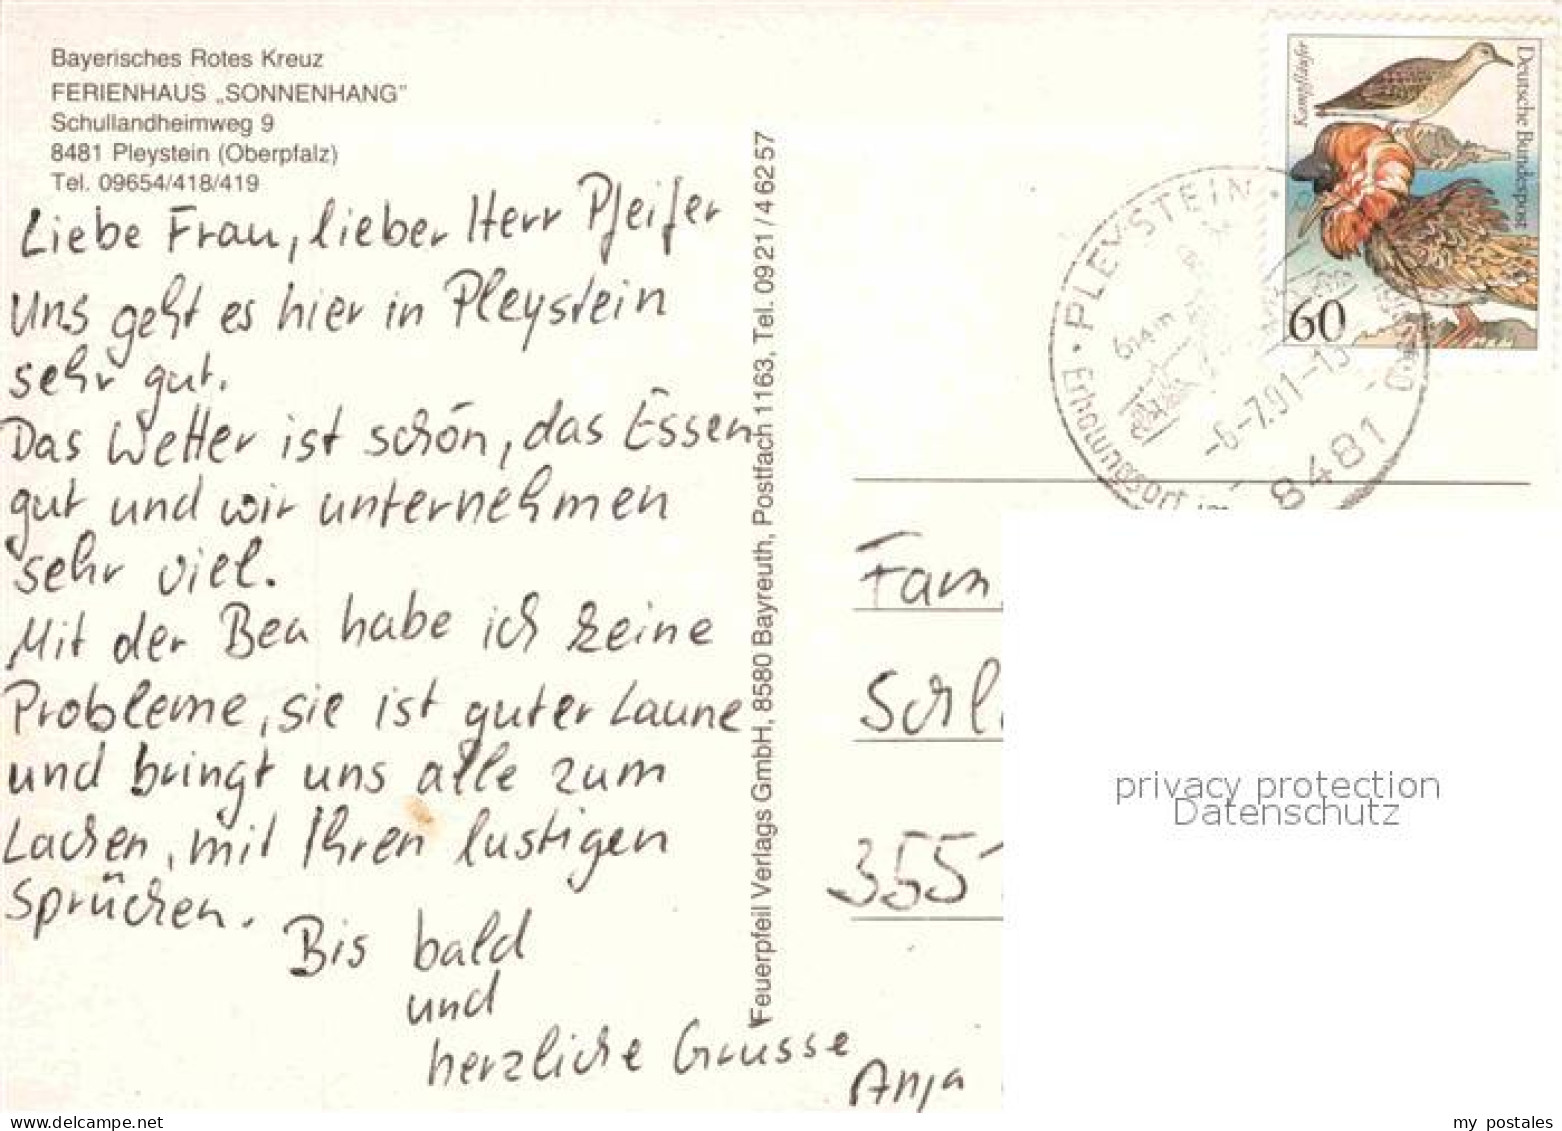 Bayerisches Rotes Kreuz
FERIENHAUS „SONNENHANG"
Schullandheimweg 9
8481 Pleystein (Oberpfalz)
Tel. 09654/418/419
Liebe Frau, lieber Herr Pfeifer
Uns geht es hier in Pleystein
sehr gut.
Das Wetter ist schön, das Essen
gut und wir unternehmen
sehr viel.
Mit der Bea habe ich keine
Probleme, sie ist guter Laune
und bringt uns alle zum
Lachen, mit Ihren lustigen
Sprüchen.
Bis bald
und
herzliche Grüsse
Anja
Feuerpfeil Verlags GmbH, 8580 Bayreuth, Postfach 1163, Tel. 09 21 / 4 62 57
Kampfläufer
Deutsche Bundespost
60
PLEYSTEIN
614 m
-6-7.91-13
8481
Erholungsort im
Fam.
Schl
355
privacy protection
Datenschutz
www.delcampe.net
my_postales